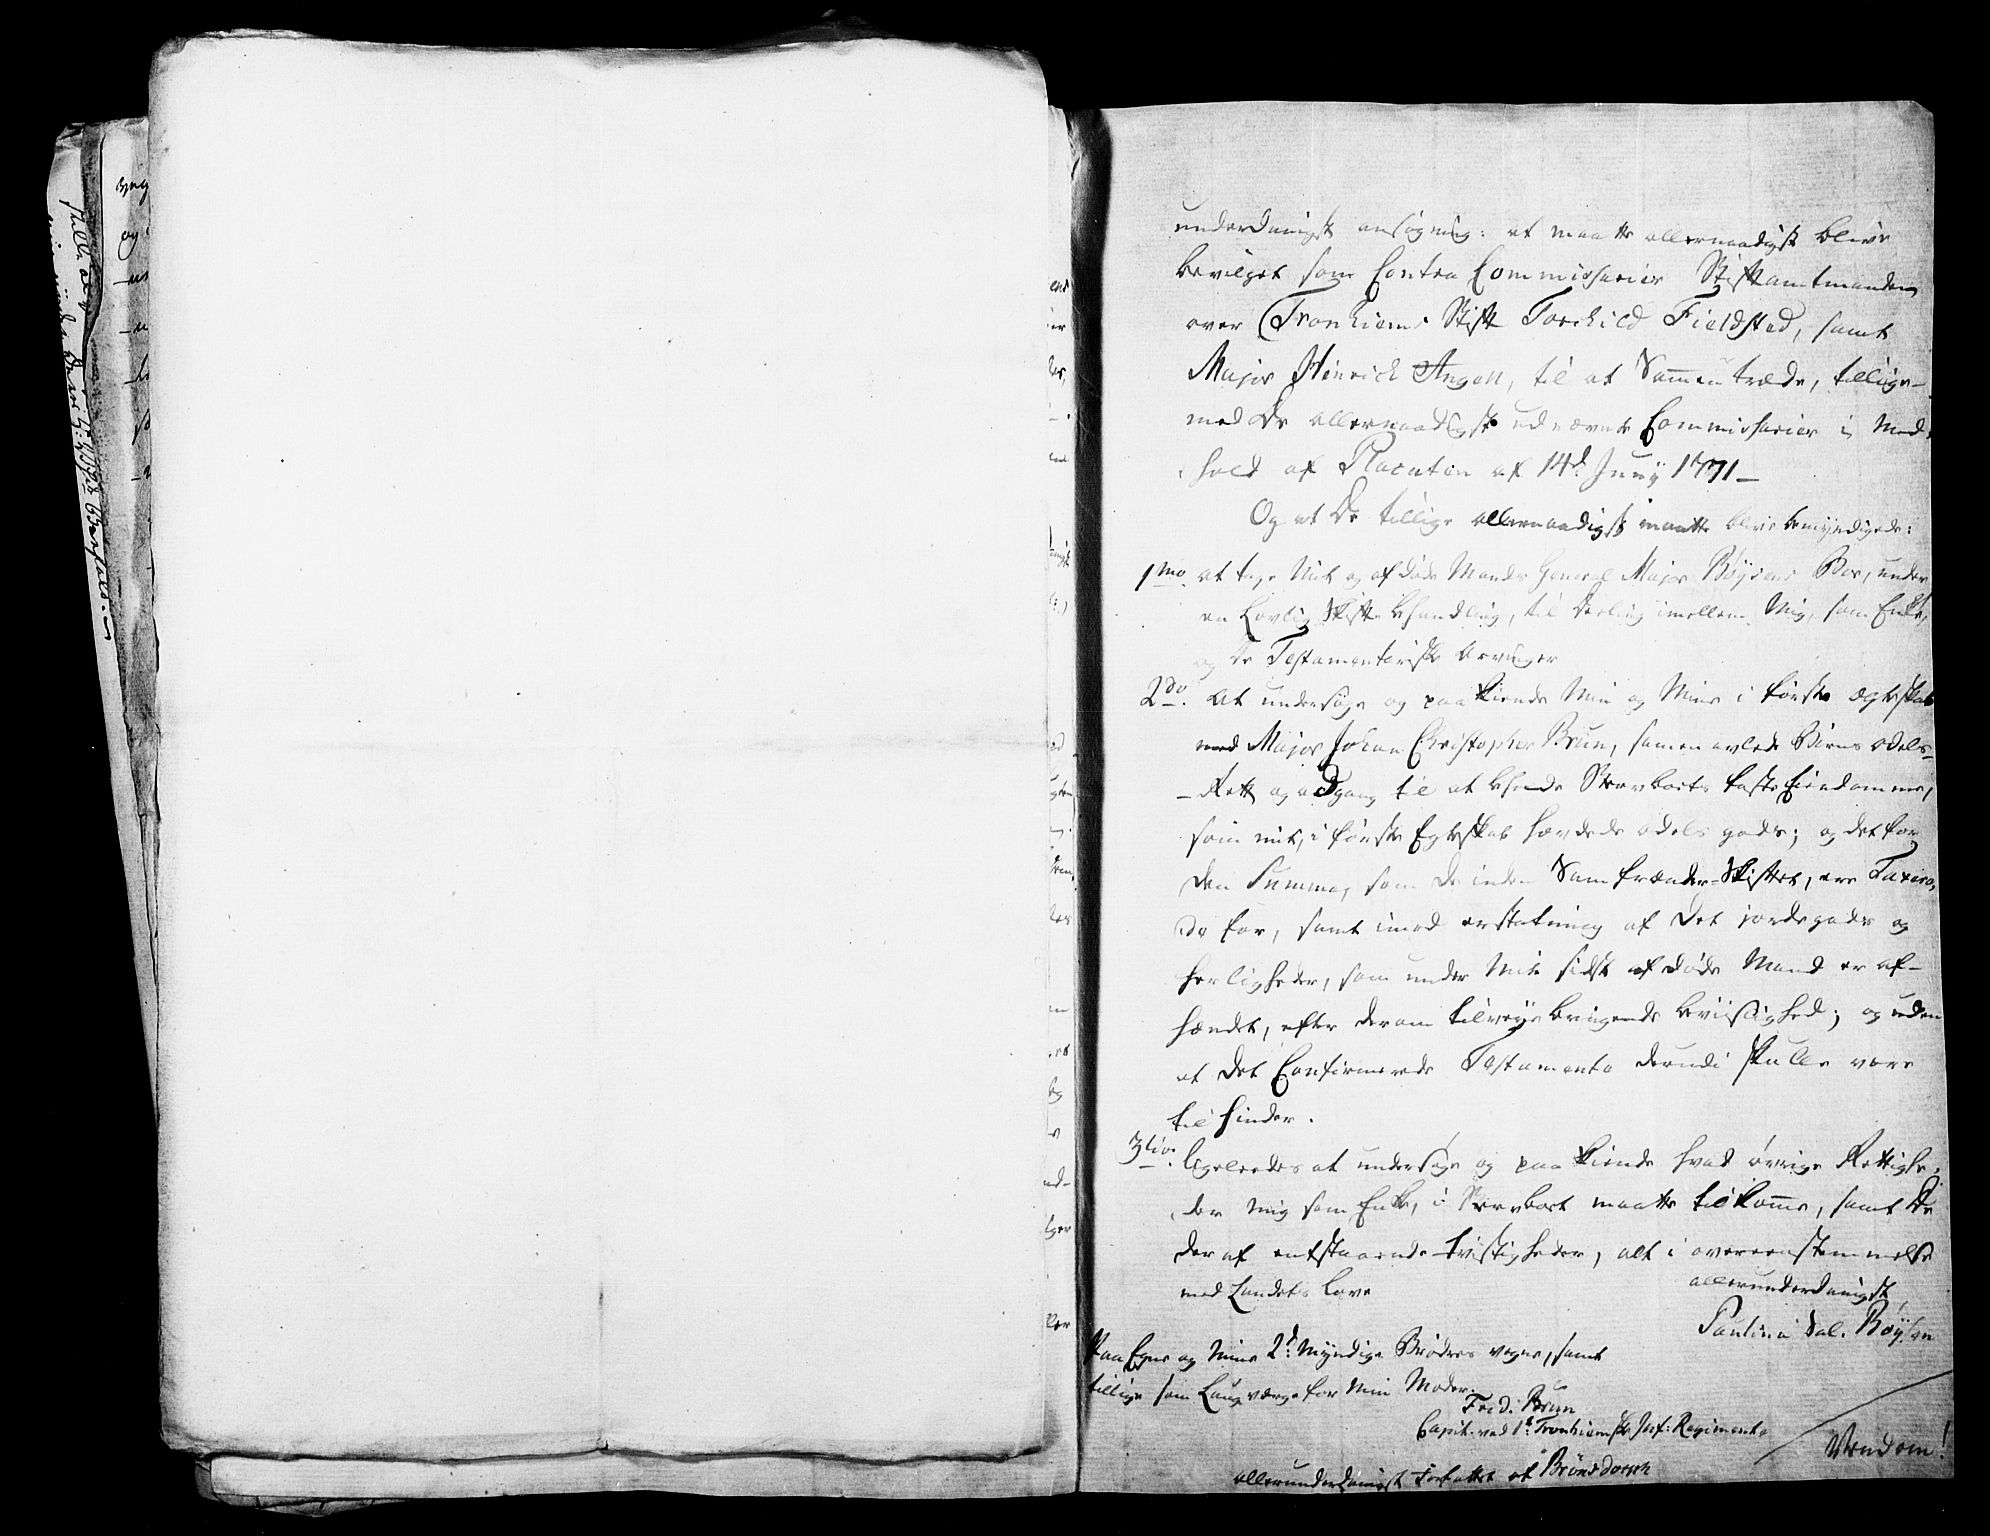 underdanigst ansøgning: at maatte allernaadigst blive
bevilget som Contra Commissarier Stiftamtmanden
over Tronhiems Stift Torchild Fieldsted, samt
Major Hinrich Angell, til at Sammentræde, tillige-
med de allernaadigst udnævnte Commissarier i Med-
hold af Placaten af 14d Junij 1771 —
Og at De tillige allernaadigst maatte blive bemyndigede:
1mo. at tage Mit og afdøde Mands General Major Böÿsens Boe, under
en Lovlig Skifte behandling, til deeling imellem Mig, som Enke,
og De Testamentariske arvinger
2do. At undersøge og paakiende Min og Mine i første Ægteskab
med Major Johan Christopher Brun, sammenavlede Børns odels-
-Rett og adgang til at behende Stervboets faste Eiendomme,
som mit, i første Egteskab hævdede odels gods; og det for
den Summa, som de inden Samfrænder-Skiftet, ere Taxere-
de for, samt imod erstatning af det jordegods og
herligheder, som under Min sidst afdøde Mand er af-
hændet, efter derom tilveÿebringende beviislighed; og uden
at det Confirmerede Testamente derudi skulle være
til hinder.
3tio. ligeleedes at undersøge og paakiende hvad øvrige Rettighe-
der mig som Enke, i Stervboet maatte tilkomme, samt De
deraf entstaaende tvistigheder, alt i overeenstemmelse
med Landets Love
allerunderdanigst
Paulina Sal. Böÿsen
Paa Egne og Mine 2de Myndige Brødres vegne, samt
tillige som Laugværge for Min Moder.
Fred. Brun
Capit. ved 1te Tronhiemske Inf: Regimente
Vend om!
allerunderdanigst Forfattet af Brønsdorph